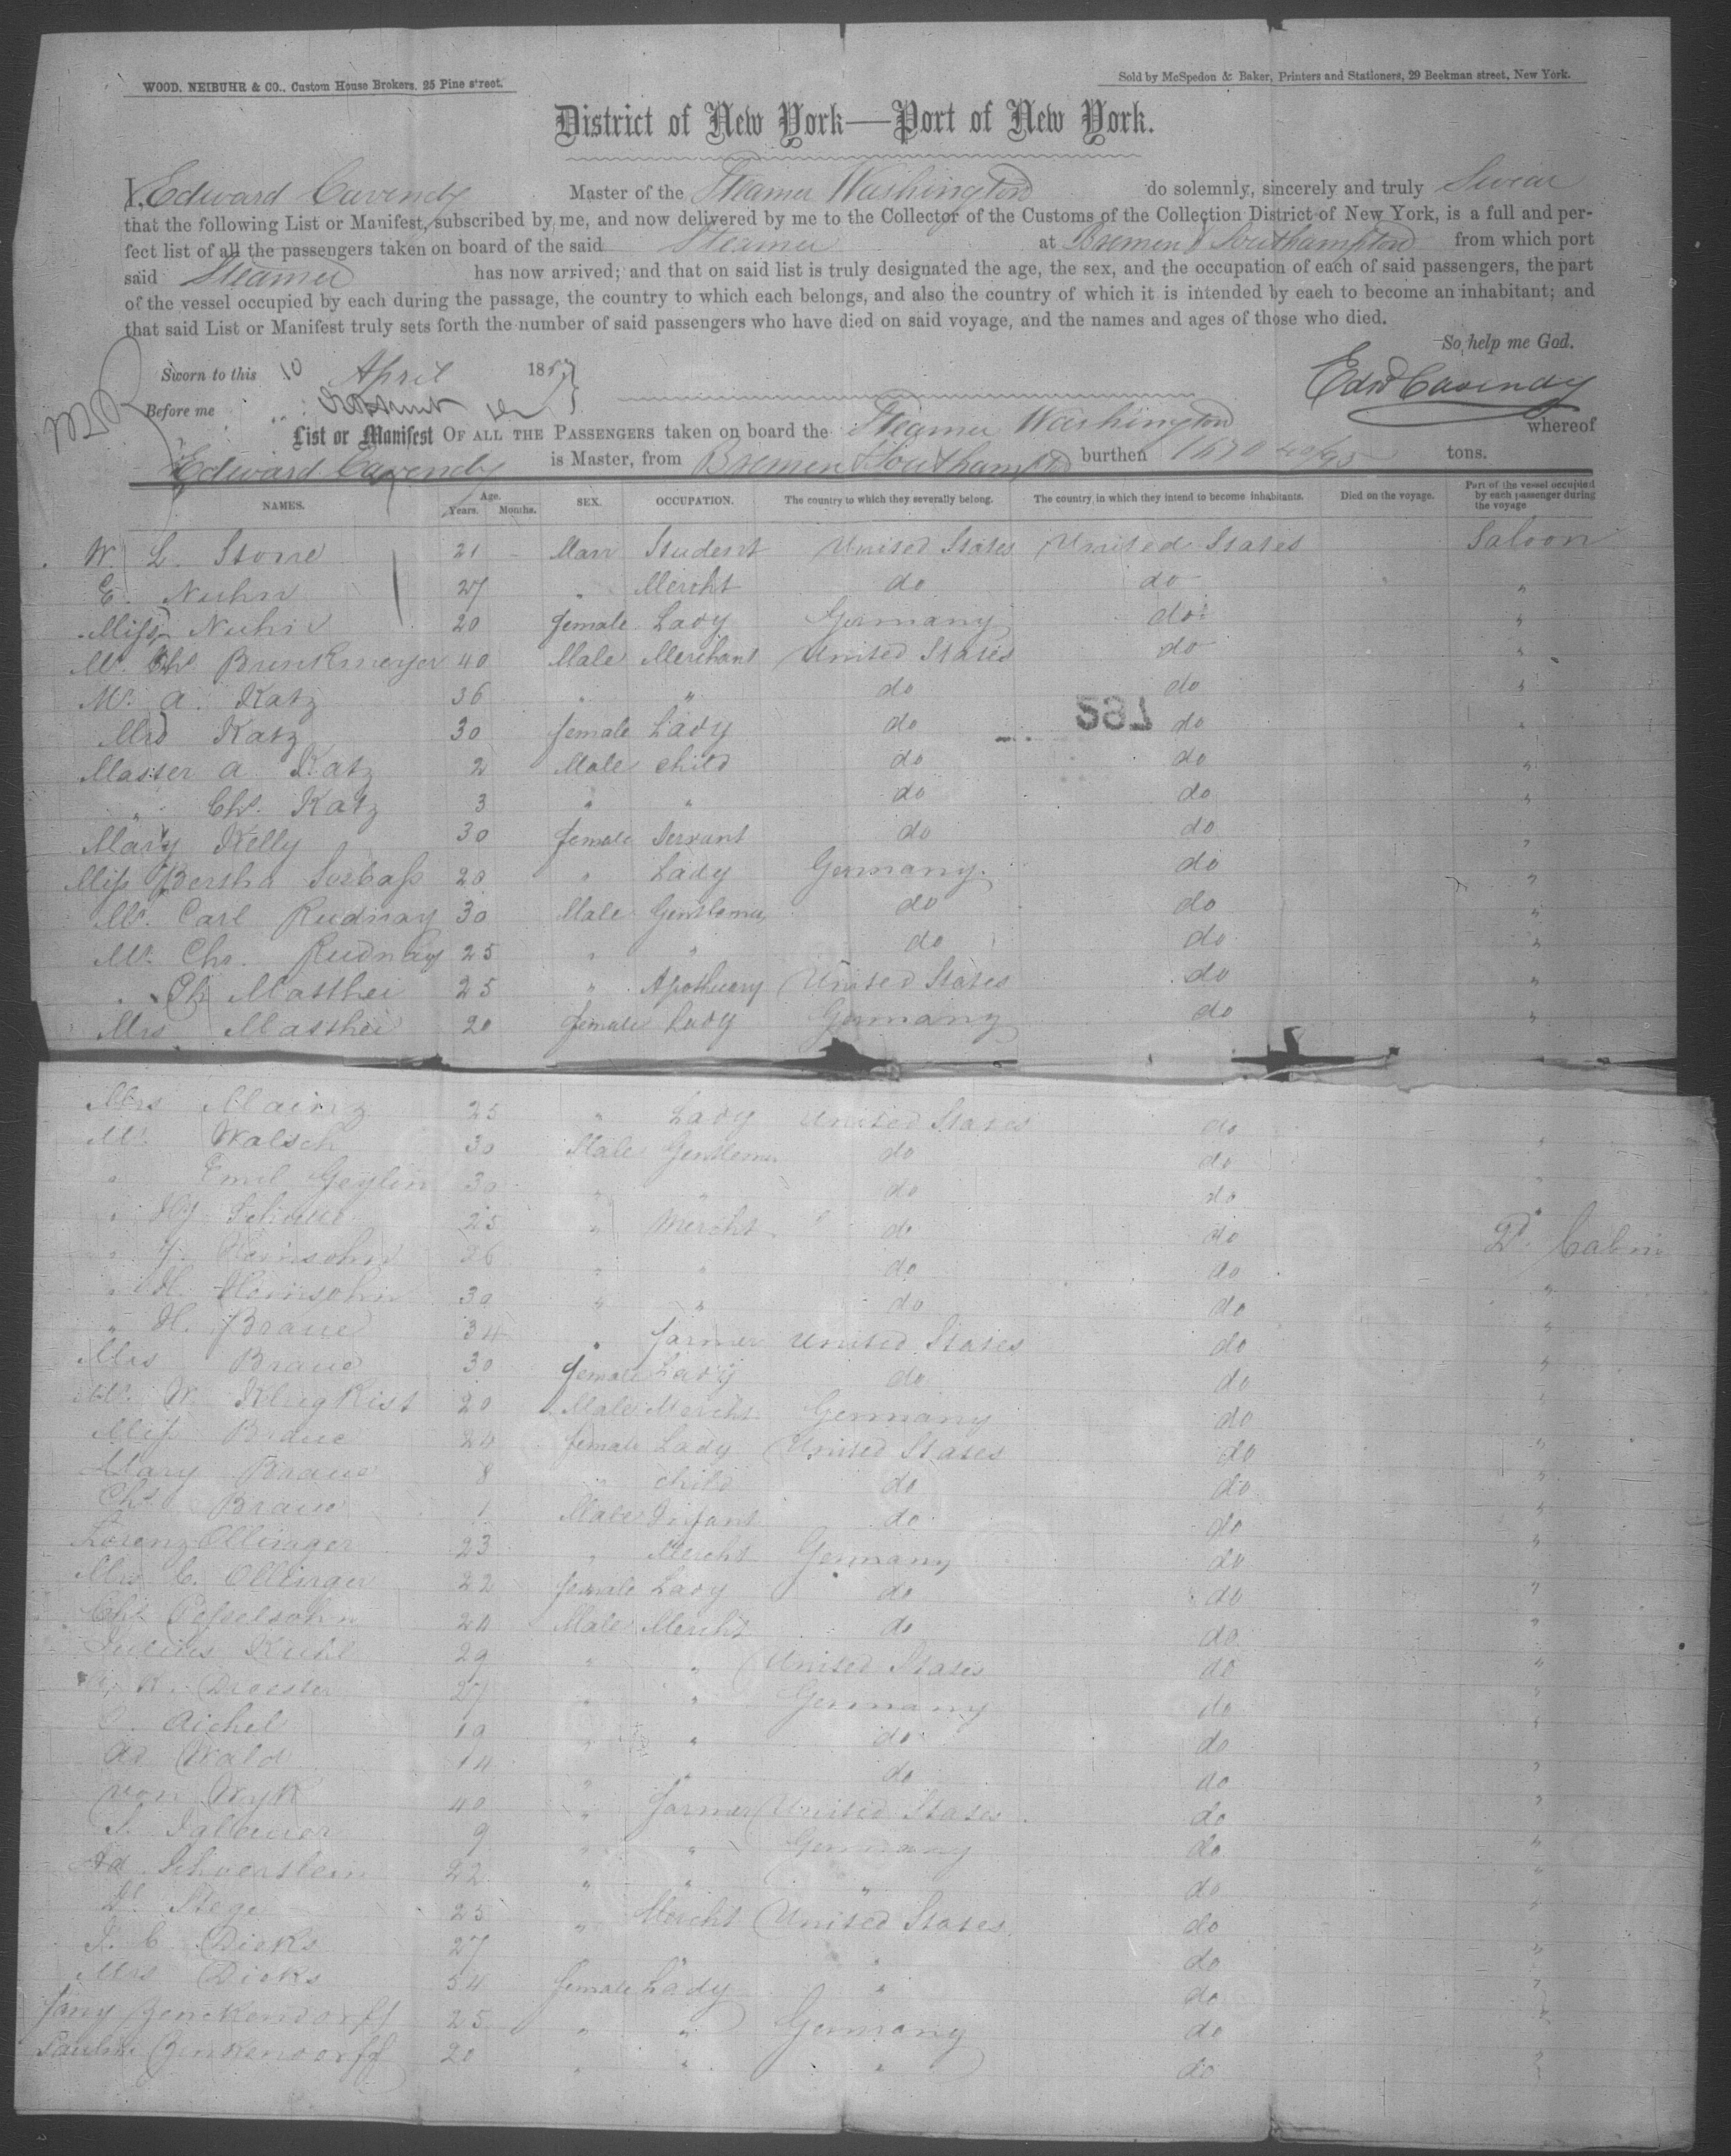 WOOD, NEIBUHR & CO., Custom House Brokers, 25 Pine street.
Sold by McSpedon & Baker, Printers and Stationers, 29 Beekman street, New York.
District of New York—Port of New York.
I, Edward Cavendy Master of the Steamer Washington do solemnly, sincerely and truly Swear
that the following List or Manifest, subscribed by me, and now delivered by me to the Collector of the Customs of the Collection District of New York, is a full and per-
fect list of all the passengers taken on board of the said Steamer at Bremen & Southampton from which port
said Steamer has now arrived; and that on said list is truly designated the age, the sex, and the occupation of each of said passengers, the part
of the vessel occupied by each during the passage, the country to which each belongs, and also the country of which it is intended by each to become an inhabitant; and
that said List or Manifest truly sets forth the number of said passengers who have died on said voyage, and the names and ages of those who died.
So help me God.
Sworn to this 10 April 1857
Edwd Cavendy
Before me
List or Manifest OF ALL THE PASSENGERS taken on board the Steamer Washington whereof
Edward Cavendy is Master, from Bremen & Southampton burthen 1670 40/95 tons.
NAMES. Age. Years. Months. SEX. OCCUPATION. The country to which they severally belong. The country in which they intend to become inhabitants. Died on the voyage. Part of the vessel occupied by each passenger during the voyage
W. L. Stone 21 - Man Student United States United States Saloon
E. Nuhn 27 " Mercht do do "
Miss Nuhn 20 female Lady Germany do "
Mr. Chs Brunkmeyer 40 Male Merchant United States do "
Mr. A. Katz 36 " " do do "
Mrs Katz 30 female Lady do do "
267
Master A Katz 2 Male child do do "
" Chs. Katz 3 " " do do "
Mary Kelly 30 female Servant do do "
Miss Bertha 20 " Lady Germany do "
Mr. Carl Rudnay 30 Male Gentleman do do "
Mr. Chs. Rudnay 25 " " do do "
" Ch Matthei 25 " Apothecary United States do "
Mrs Matthei 20 female Lady Germany do "
Mrs Mainz 25 " Lady United States do "
Mr. Walsch 30 Male Gentleman do do "
" Emil Geylin 30 " " do do "
" Hy. 25 " Mercht do do 2d Cabin
" J. Heinsohn 26 " " do do "
" H. Heinsohn 30 " " do do "
" H. Braue 34 " farmer United States do "
Mrs Braue 30 female Lady do do "
Mr. W. Klugkist 20 Male Mercht Germany do "
Miss Braue 24 female Lady United States do "
Mary Braue 8 " child do do "
Chs Braue 1 Male Infant do do "
Lorenz Ollinger 23 " Mercht Germany do "
Mrs C. Ollinger 22 female Lady do do "
Chs Pesselsohn 24 Male Mercht do do "
Julius Kuhl 29 " " United States do "
K. Droester 27 " " Germany do "
C. Aichel 19 " " do do "
Ad Wald 14 " " do do "
von Wyk 40 " farmer United States do "
9 " " Germany do "
Ad. 22 " " " do "
Stege 25 " Mercht United States do "
J. C. Dicks 27 " " do "
Mrs Dicks 54 female Lady " do "
Fany Benckendorff 25 " " Germany do "
Pauline Benkendorff 20 " " " do "